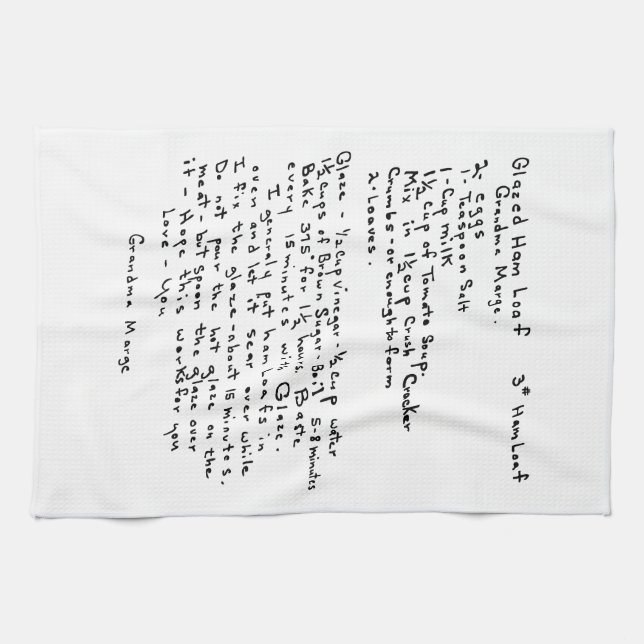 Glazed Ham Loaf 3# Ham Loaf
Grandma Marge.
2- eggs
1- Teaspoon Salt
1- Cup milk
1½ cup of Tomato Soup.
Mix in 1½ cup Crush Crocker
Crumbs - or enough to form
2. Loaves.
Glaze - ½ cup vinegar - ½ cup water
1½ cups of Brown Sugar - Boil 5-8 minutes
Bake 375° for 1½ hours. Baste
every 15 minutes with Glaze.
I generaly put ham Loafs in
oven and let it sear over while
I fix the glaze - about 15 minutes.
Do not pour the hot glaze on the
meat - but spoon the glaze over
it - Hope this works for you
Love - You
Grandma Marge